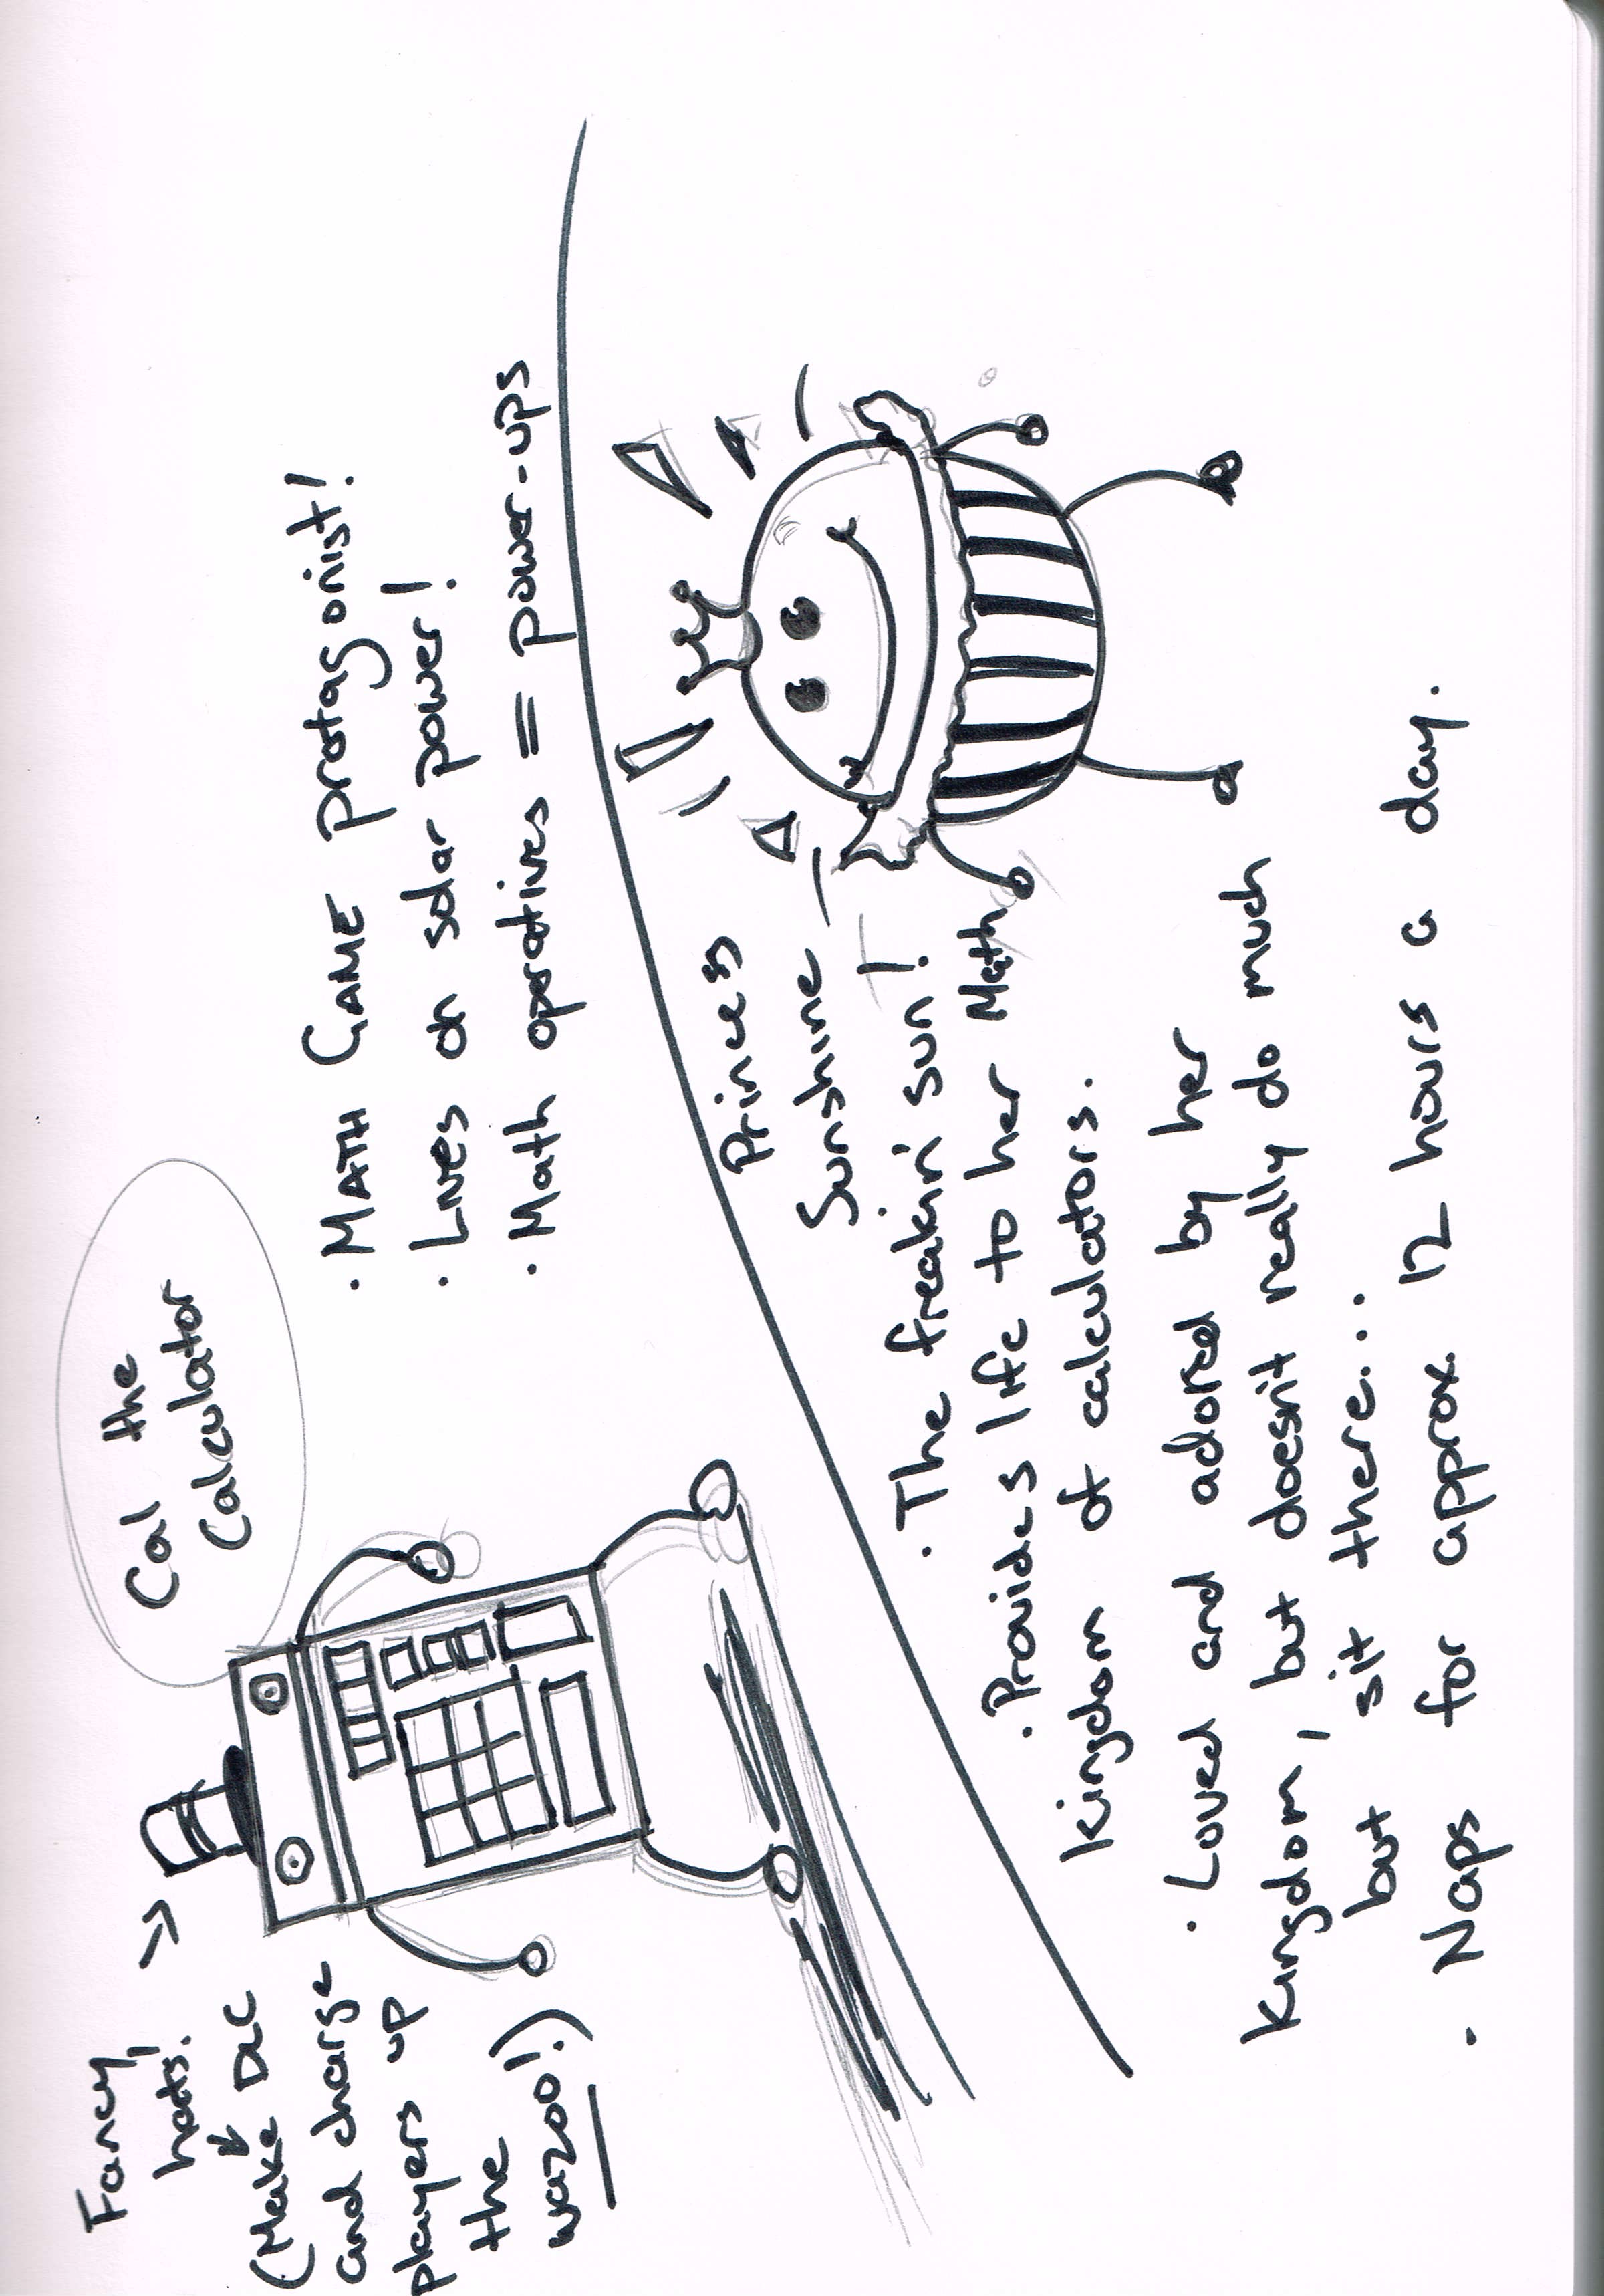 Fancy
hats!
(Make DLC
and charge
players up
the
wazoo!)
Cal the
Calculator
· MATH GAME protagonist!
· Lives on solar power!
· Math operatives = power-ups
Princess
Sunshine
· The freakin' sun!
· Provides life to her Math
kingdom of calculators.
· Loved and adored by her
kingdom, but doesn't really do much
but sit there...
- Naps for approx. 12 hours a day.